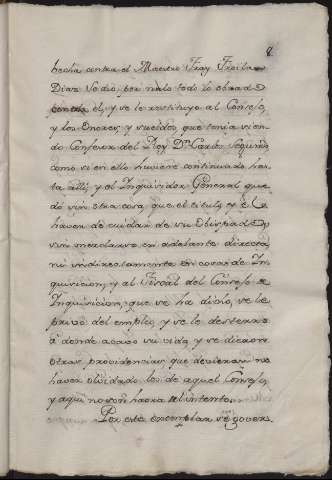 8.
hecha contra el Maestro Fray Froilan
Diaz se dio por nulo todo lo obrado
contra el, y se le restituyo al Consejo,
y los onores, y sueldos, que tenia sien-
do Confesor del Rey Dn. Carlos Segundo
como si en ello huviese continuado has-
ta alli; y el Inquisidor General que-
dó sin otra cosa, que el titulo, y el
haver de cuidar de su obispado,
sin mezclarse en adelante directa,
ni indirectamente en cosas de In-
quisicion, y al Fiscal del Consejo de
Inquisicion, que se ha dicho, se le
privó del empleo, y se le desterró
á donde acavó su vida, y se dieron
otras providencias que devieran no
haver olvidado los de aquel Consejo,
y aqui no son haora del intento.
Por este exemplar se govier-